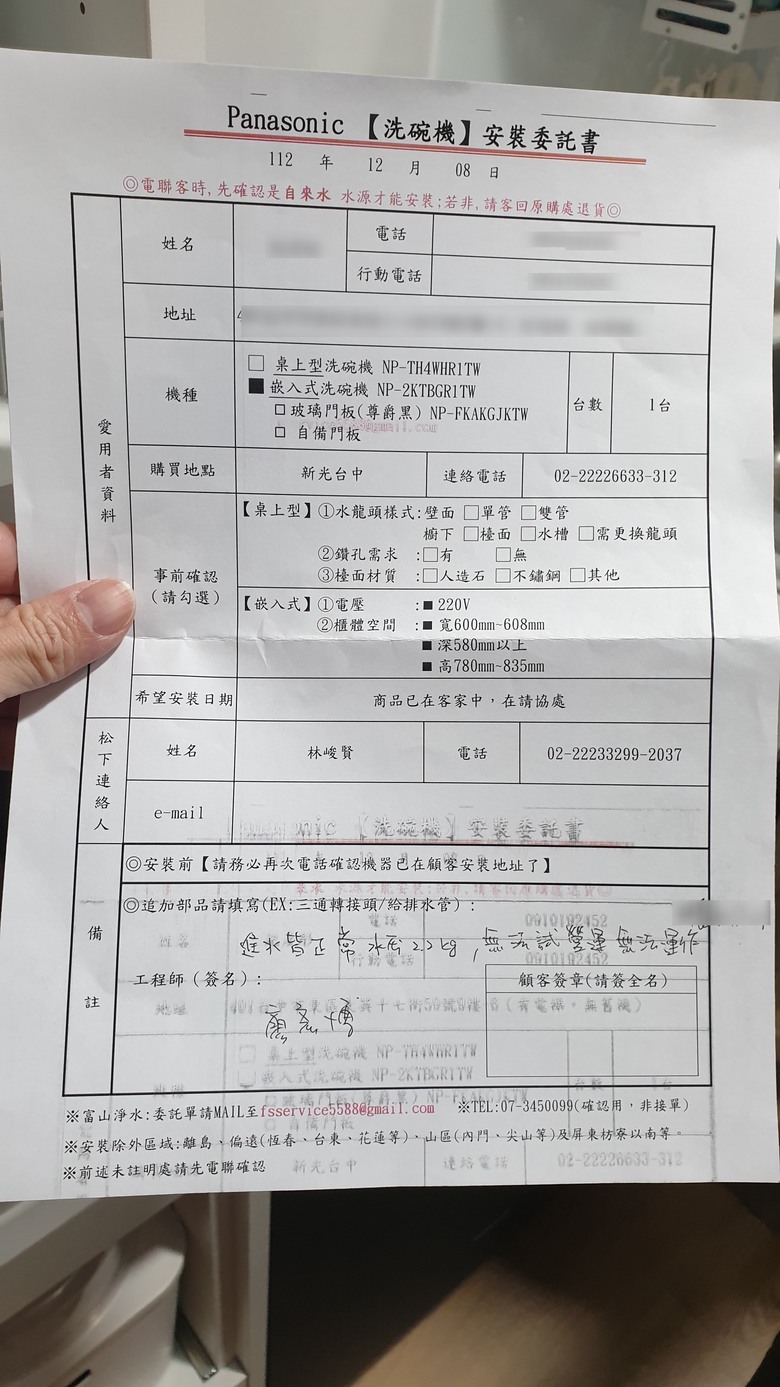 Panasonic 【洗碗機】安裝委託書
112 年 12 月 08 日
◎電聯客時,先確認是自來水 水源才能安裝;若非,請客回原購處退貨◎
愛用者資料
姓名
電話
行動電話
地址
機種
□ 桌上型洗碗機 NP-TH4WHR1TW
■ 嵌入式洗碗機 NP-2KTBGR1TW
□ 玻璃門板(尊爵黑) NP-FKAKGJKTW
□ 自備門板
台數 1台
購買地點 新光台中 連絡電話 02-22226633-312
事前確認
(請勾選)
【桌上型】①水龍頭樣式:壁面 □單管 □雙管
櫥下 □檯面 □水槽 □需更換龍頭
②鑽孔需求 :□有 □無
③檯面材質 :□人造石 □不鏽鋼 □其他
【嵌入式】①電壓 :■ 220V
②櫃體空間 :■ 寬600mm~608mm
■ 深580mm以上
■ 高780mm~835mm
希望安裝日期 商品已在客家中,在請協處
松下連絡人
姓名 林峻賢 電話 02-22233299-2037
e-mail
備註
◎安裝前【請務必再次電話確認機器已在顧客安裝地址了】
◎追加部品請填寫(EX:三通轉接頭/給排水管):
進水皆正常 水压 2.2kg,無法試營運 無法運作
工程師(簽名):
顧客簽章(請簽全名)
※富山淨水:委託單請MAIL至fsservice5588@gmail.com ※TEL:07-3450099(確認用,非接單)
※安裝除外區域:離島、偏遠(恆春、台東、花蓮等)、山區(內門、尖山等)及屏東枋寮以南等。
※前述未註明處請先電聯確認